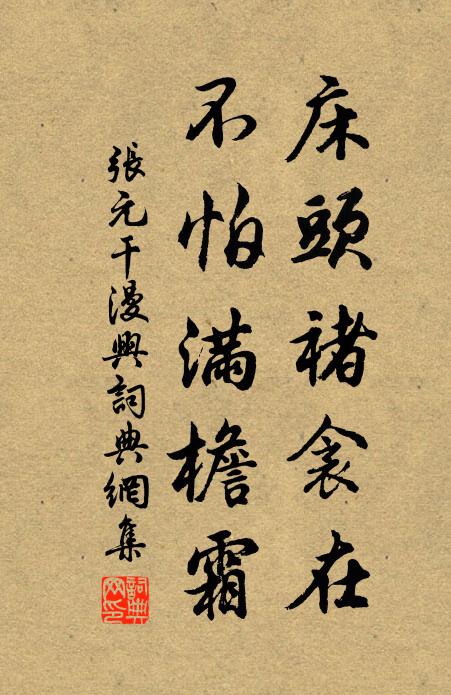 床頭褚衾在
不怕滿檐霜
張元干漫興詞典網集
詞典網印